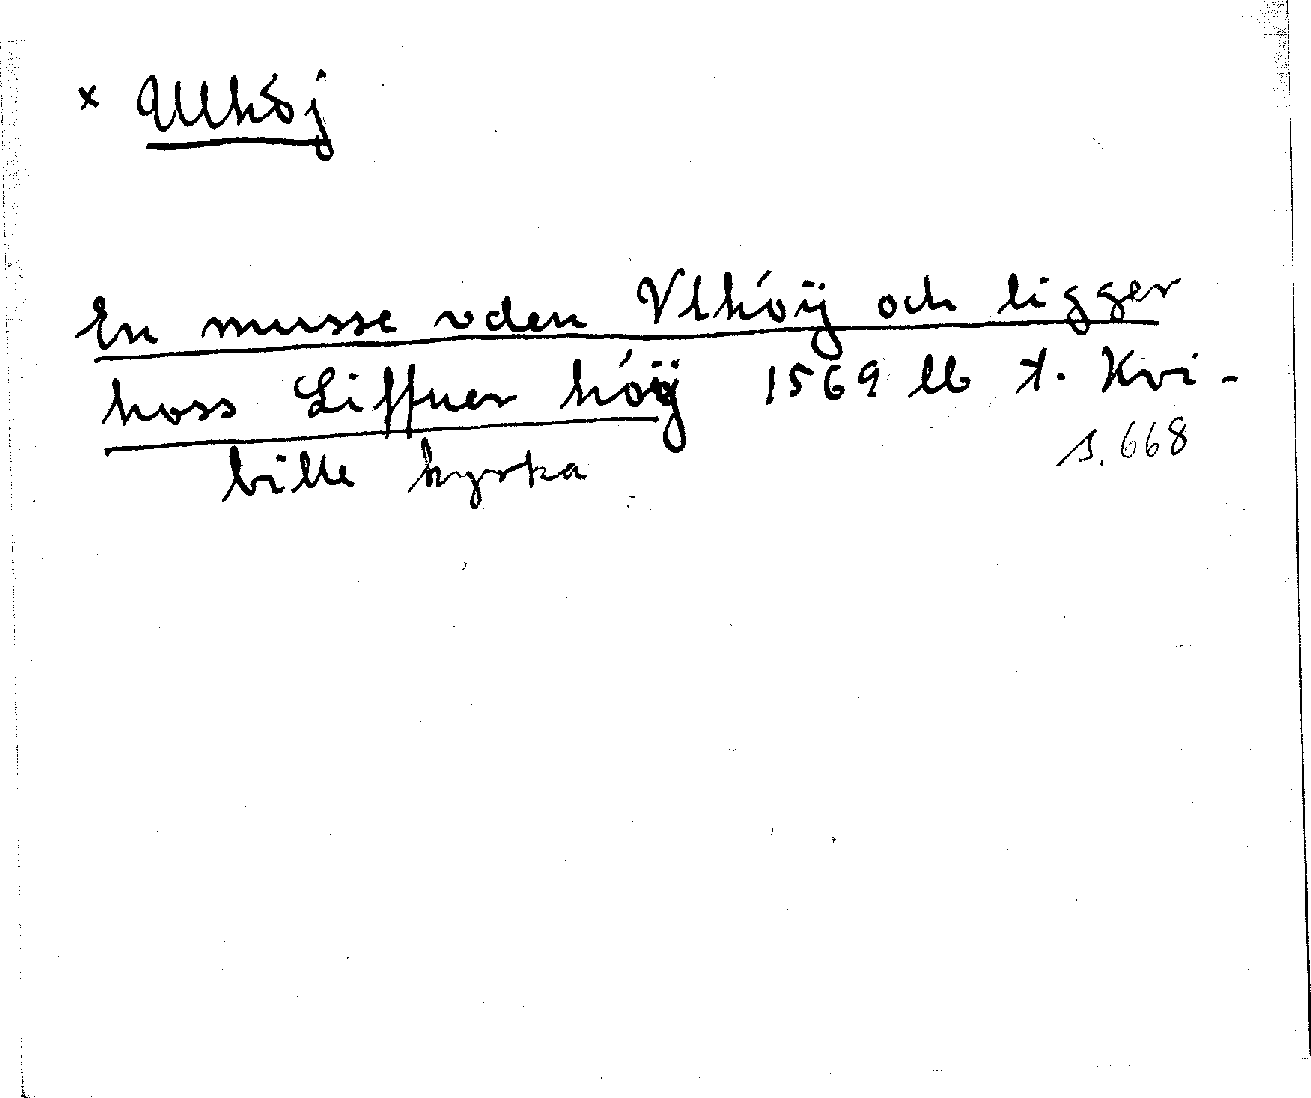 × Ullhöj
En musse vden Vlhóÿ och ligger
hoss Liffuer hóÿ 1569 lb t. Kvi-
bille kyrka s. 668